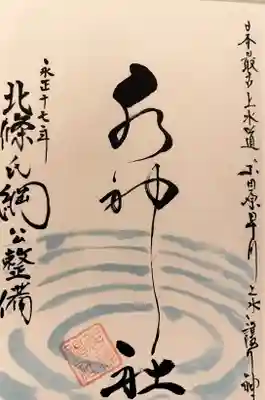 日本最古上水道 小田原早川上水を護り神
水神社
永正十七年
北條氏綱公整備